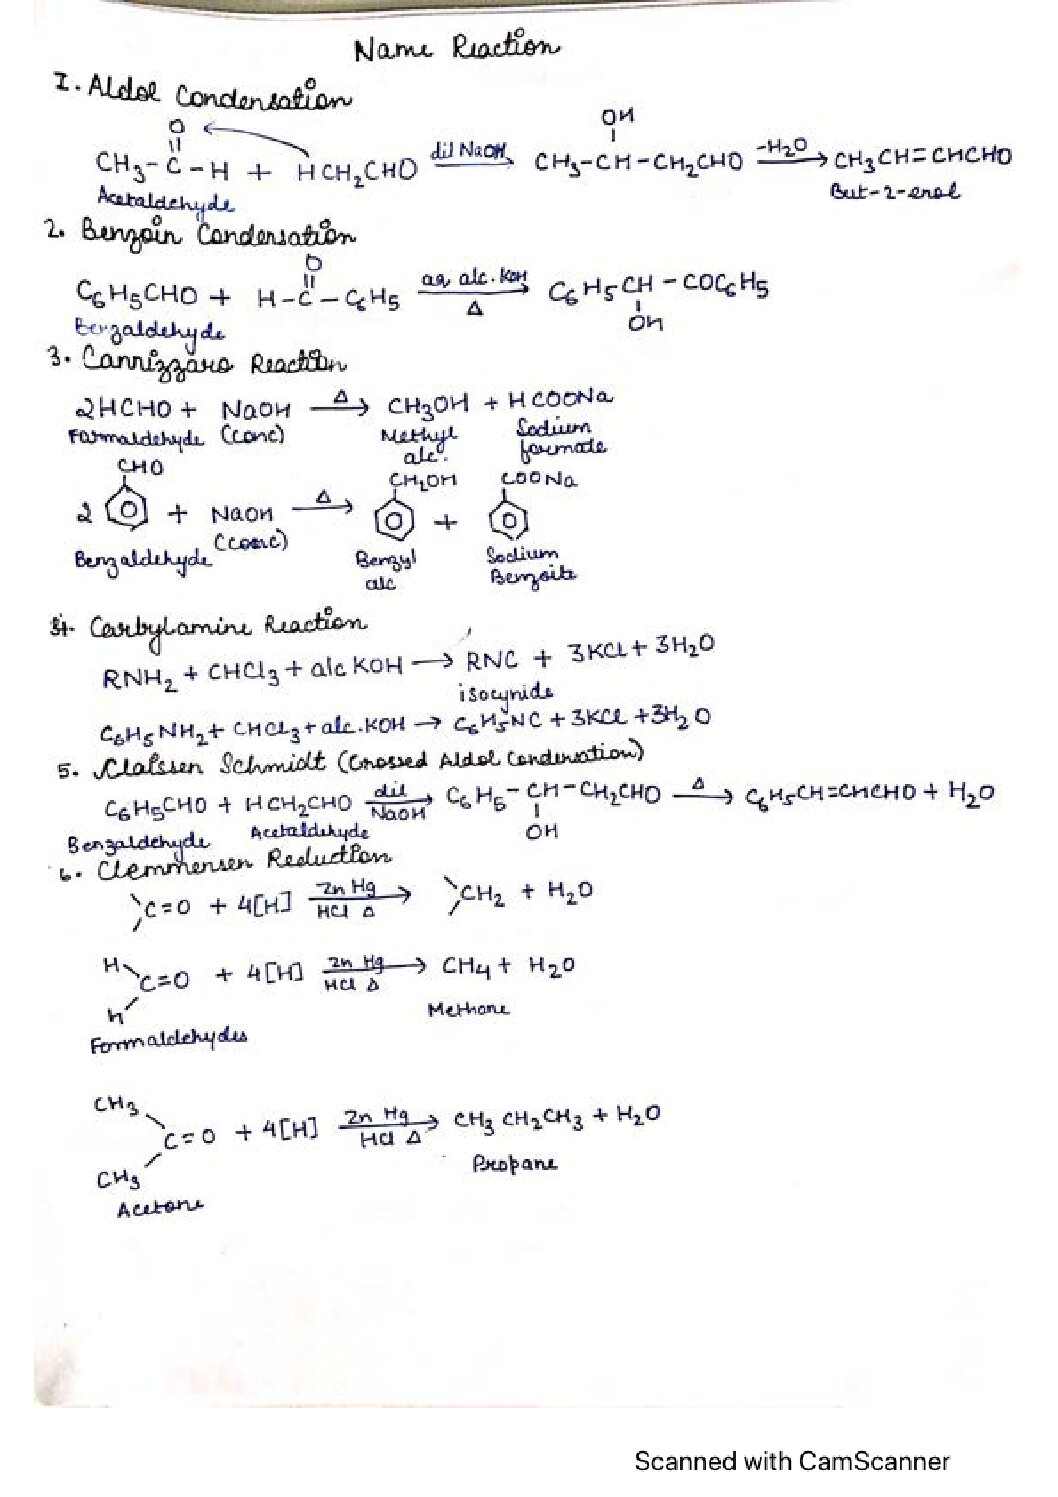 Name Reaction
I. Aldol Condensation
O
CH3-C-H + HCH2CHO dil NaOH → CH3-CH-CH2CHO -H2O → CH3CH=CHCHO
OH
Acetaldehyde
But-2-enal
2. Benzoin Condensation
O
C6H5CHO + H-C-C6H5 aq alc. KOH Δ → C6H5CH-COC6H5
Benzaldehyde
OH
3. Cannizzaro Reaction
2HCHO + NaOH Δ → CH3OH + HCOONa
Formaldehyde (conc) Methyl alc. Sodium formate
CHO CH2OH COONa
2 + NaOH Δ → +
(conc)
Benzaldehyde Benzyl alc Sodium Benzoite
4. Carbylamine Reaction
RNH2 + CHCl3 + alc KOH → RNC + 3KCl + 3H2O
isocynide
C6H5NH2 + CHCl3 + alc. KOH → C6H5NC + 3KCl + 3H2O
5. Claissen Schmidt (Crossed Aldol Condensation)
C6H5CHO + HCH2CHO dil NaOH → C6H5-CH-CH2CHO Δ → C6H5CH=CHCHO + H2O
Benzaldehyde Acetaldehyde OH
6. Clemmensen Reduction
C=O + 4[H] Zn Hg HCl Δ → CH2 + H2O
H
C=O + 4[H] Zn Hg HCl Δ → CH4 + H2O
H
Methane
Formaldehydes
CH3
C=O + 4[H] Zn Hg HCl Δ → CH3 CH2 CH3 + H2O
CH3
Propane
Acetone
Scanned with CamScanner